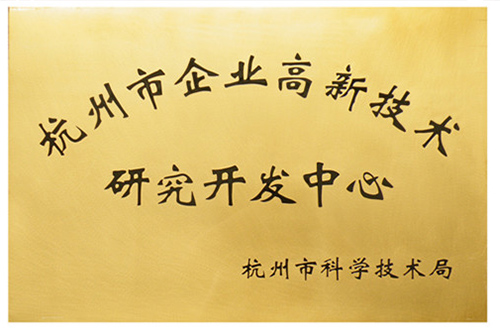 杭州市企业高新技术
研究开发中心
杭州市科学技术局